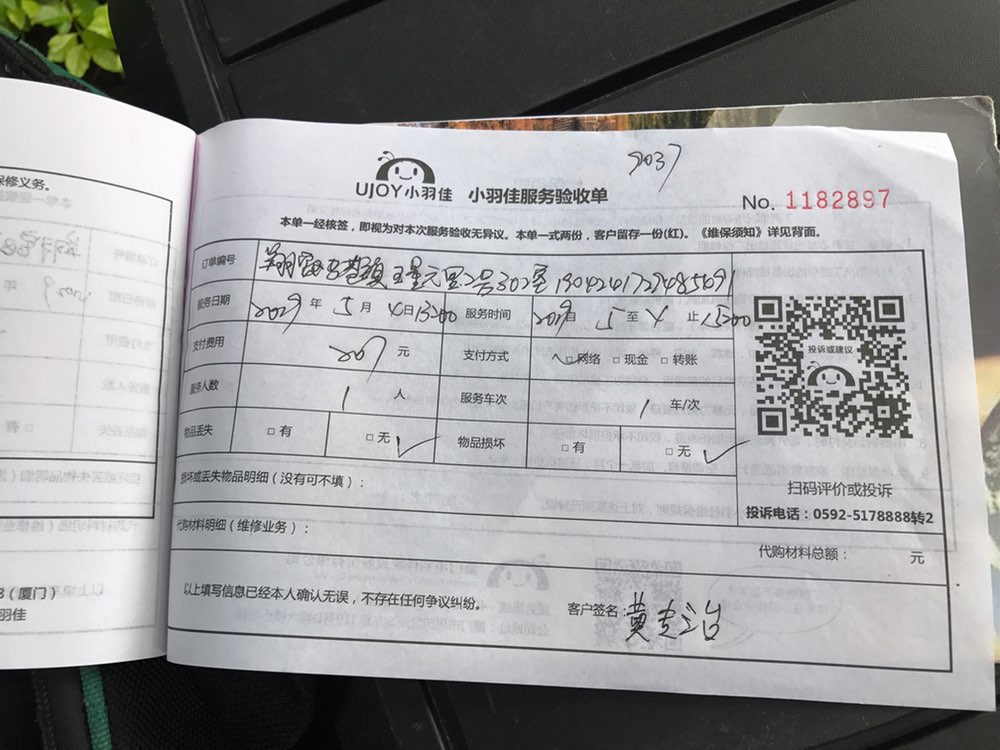 保修义务。
9037
UJOY小羽佳 小羽佳服务验收单
No. 1182897
本单一经核签，即视为对本次服务验收无异议。本单一式两份，客户留存一份(红)。《维保须知》详见背面。
订单编号
服务日期 年 5月 4日13:00 服务时间 自 5至4 止 15:00
支付费用 207元 支付方式 □网络 □现金 □转账
服务人数 1人 服务车次 1车/次
物品丢失 □有 □无 ✓ 物品损坏 □有 □无 ✓
投诉或建议
扫码评价或投诉
投诉电话：0592-5178888转2
损坏或丢失物品明细（没有可不填）：
代购材料明细（维修业务）：
代购材料总额： 元
以上填写信息已经本人确认无误，不存在任何争议纠纷。
客户签名：黄志治
（厦门）
羽佳